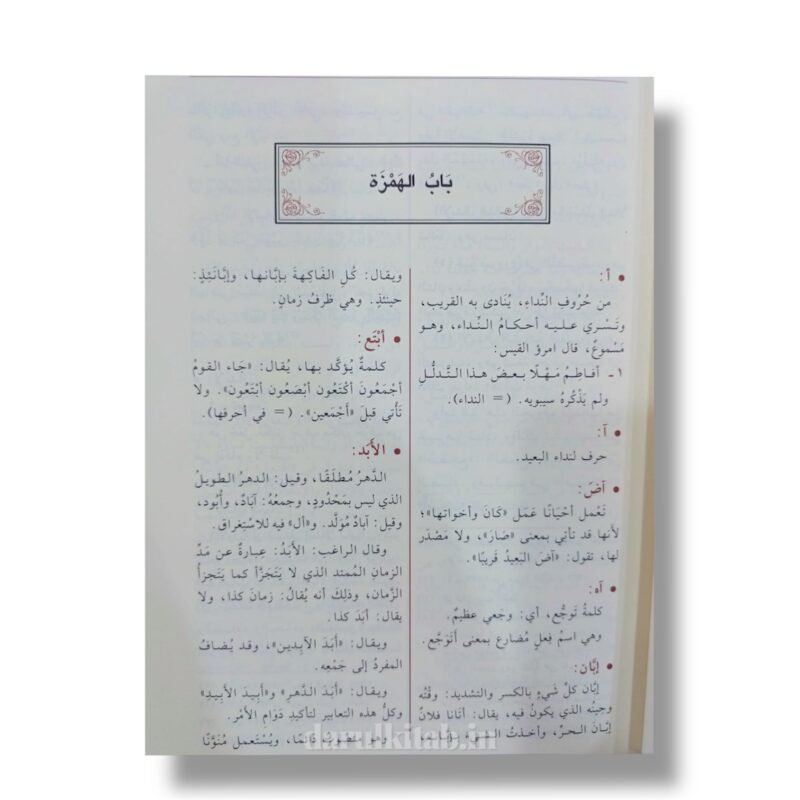 بَابُ الهَمْزَة
• أ:
من حُرُوفِ النِّداءِ، يُنَادى به القريب،
وتَسْري عليه أحكامُ النِّداء، وهو
مَسْموعٌ، قال امرؤ القيس:
١ـ أفاطِمُ مَهْلًا بعضَ هذا التَّدلُّلِ
ولم يَذْكُرهُ سيبويه. (= النداء).
• آ:
حرف لنداء البعيد.
• آضَ:
تَعْمل أحْيَانًا عَمَل «كَانَ وأخواتها»؛
لأنها قد تأتي بمعنى «صَارَ»، ولا مَصْدَر
لها، تقول: «آضَ البَعيدُ قَريبًا».
• آه:
كلمةُ تَوجُّع، أي: وجَعي عظيمٌ.
وهي اسمُ فِعلٍ مُضارع بمعنى أتَوجَّع.
• إبَّان:
إبَّان كلِّ شَيءٍ بالكسر والتشديد: وقْتُه
وحِينُه الذي يكونُ فيه، يقال: أتَانا فلانٌ
إبَّانَ الحـرِّ، وأخـذتُ الشـيءَ بإبَّانِه،
ويقال: كُلِ الفَاكِهةَ بإبَّانها، وإبَّانَئِذٍ:
حينئذٍ. وهي ظرفُ زمانٍ.
• أبْتَع:
كلمةٌ يُؤكَّد بها، يُقال: «جَاء القومُ
أجْمَعُونَ أكْتَعُون أبْصَعُون أبْتَعُون». ولا
تَأتي قبلَ «أجْمَعين». (= في أحرفها).
• الأبَد:
الدَّهرُ مُطلَقًا، وقيل: الدهرُ الطويلُ
الذي ليس بمَحْدُودٍ، وجمعُهُ: آبَادٌ، وأُبُود،
وقيل: آبادٌ مُوَلَّد. و«أل» فيه للاسْتِغراق.
وقال الراغب: الأبَدُ: عِبارةٌ عن مَدِّ
الزمانِ المُمتد الذي لا يَتَجَزَّأ كما يتَجزأ
الزَّمان، وذلِكَ أنه يُقالُ: زمانَ كذا، ولا
يقال: أبَدَ كذا.
ويقال: «أبَدَ الآبِدين»، وقد يُضافُ
المفردُ إلى جَمْعِه.
ويقال: «أبَدَ الدَّهرِ» و«أبِيدَ الأبِيدِ»
وكلُّ هذه التعابير لتأكيدِ دَوَامِ الأمْر.
وهو منصُوبٌ دَائمًا، ويُسْتعمل مُنَوَّنًا
darulkitab.in